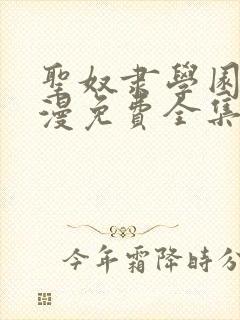 聖奴隶學園
漫免費全集
今年霜降時分